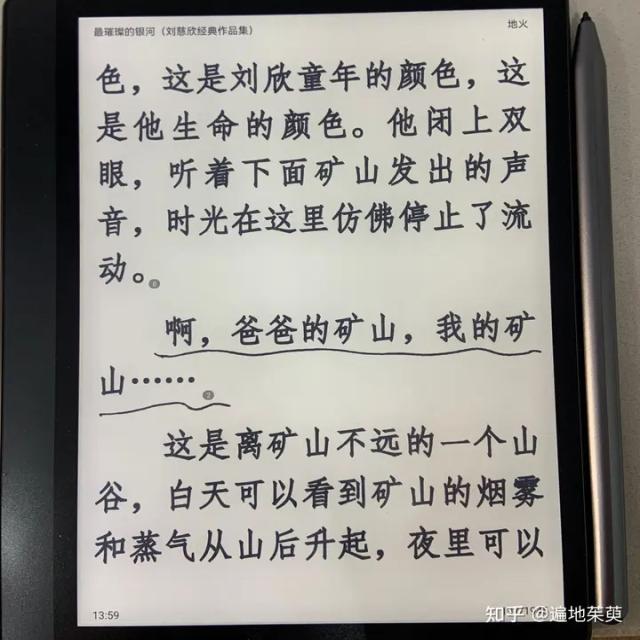 最璀璨的银河（刘慈欣经典作品集）
地火
色，这是刘欣童年的颜色，这
是他生命的颜色。他闭上双
眼，听着下面矿山发出的声
音，时光在这里仿佛停止了流
动。
啊，爸爸的矿山，我的矿
山……
这是离矿山不远的一个山
谷，白天可以看到矿山的烟雾
和蒸气从山后升起，夜里可以
13:59
知乎 @遍地茱萸